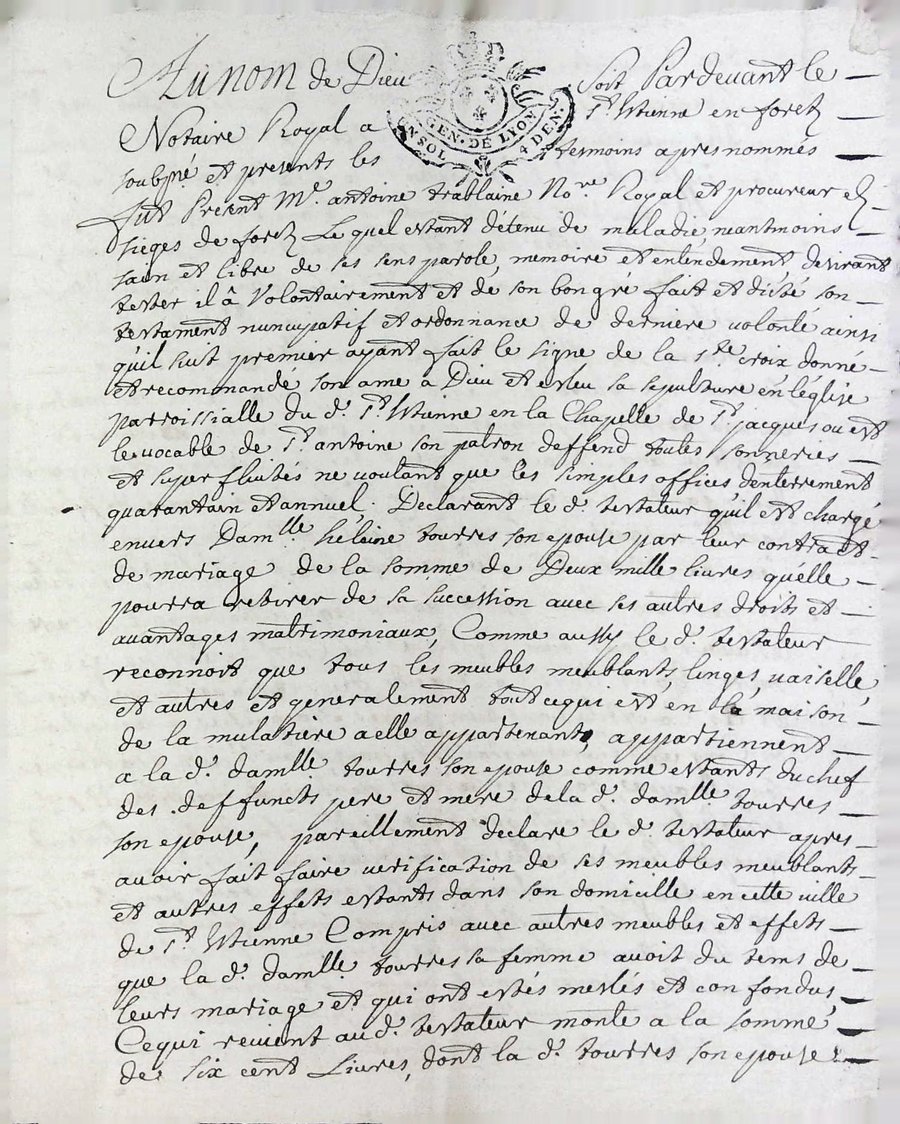 Au nom de Dieu soit Pardevant le
Notaire Royal a St. Etienne en foretz
soubsné et presents les tesmoins apres nommés
GEN. DE LYON
UN SOL 4 DEN.
fut Present Me. antoine trablaine Nore. Royal et procureur ez
sieges de foretz Lequel estant détenu de maladie neantmoins
sain et libre de ses sens parole, memoire et entendement, desirant
tester il â Volontairement et de son bon gré fait et dicté son
testament nuncupatif et ordonnance de derniere volonté ainsi
quil suit premier ayant fait le signe de la ste. croix donné
et recommandé son ame a Dieu et esleu sa sepulture en léglise
parroissialle du d. St. Etienne en la Chapelle de St. jacques ou est
le vocable de St. antoine son patron deffend toutes sonneries
et superfluités ne voulant que les simples offices dénterrement
quarantain et annuel. Declarant le d. testateur quil est chargé
envers Damlle hélaine tourres son epouse par leur contract
de mariage de la somme de Deux mille livres quélle
pourra retirer de sa succession avec ses autres droits et
avantages matrimoniaux, Comme aussy le d. testateur
reconnoit que tous les meubles meublants, linges, vaiselle,
et autres et generalement tout cequi est en la maison
de la mulatiere a elle appartenants, appartiennent
a la d. damlle tourres son epouse comme estants du chef
des deffuncts pere et mere dela d. damlle tourres
son epouse, pareillement declare le d. testateur apres
avoir fait faire verification de ses meubles meublants
et autres effets estants dans son domicille en cette ville
de St. Etienne Compris avec autres meubles et effets
que la d. damlle tourres sa femme avoit du tems de
leurs mariage et qui ont estés meslés et confondus
Cequi revient au d. testateur monte a la somme
de six cent Livres, dont la d. tourres son epouse